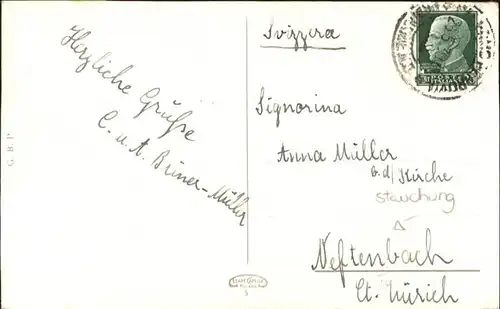 Herzliche Grüße
C. u. A. Büner-Müller
G. B. P.
Svizzera
Signorina
Anna Müller
b. d/ Kirche
stauchung
Neftenbach
Ct. Zürich
5